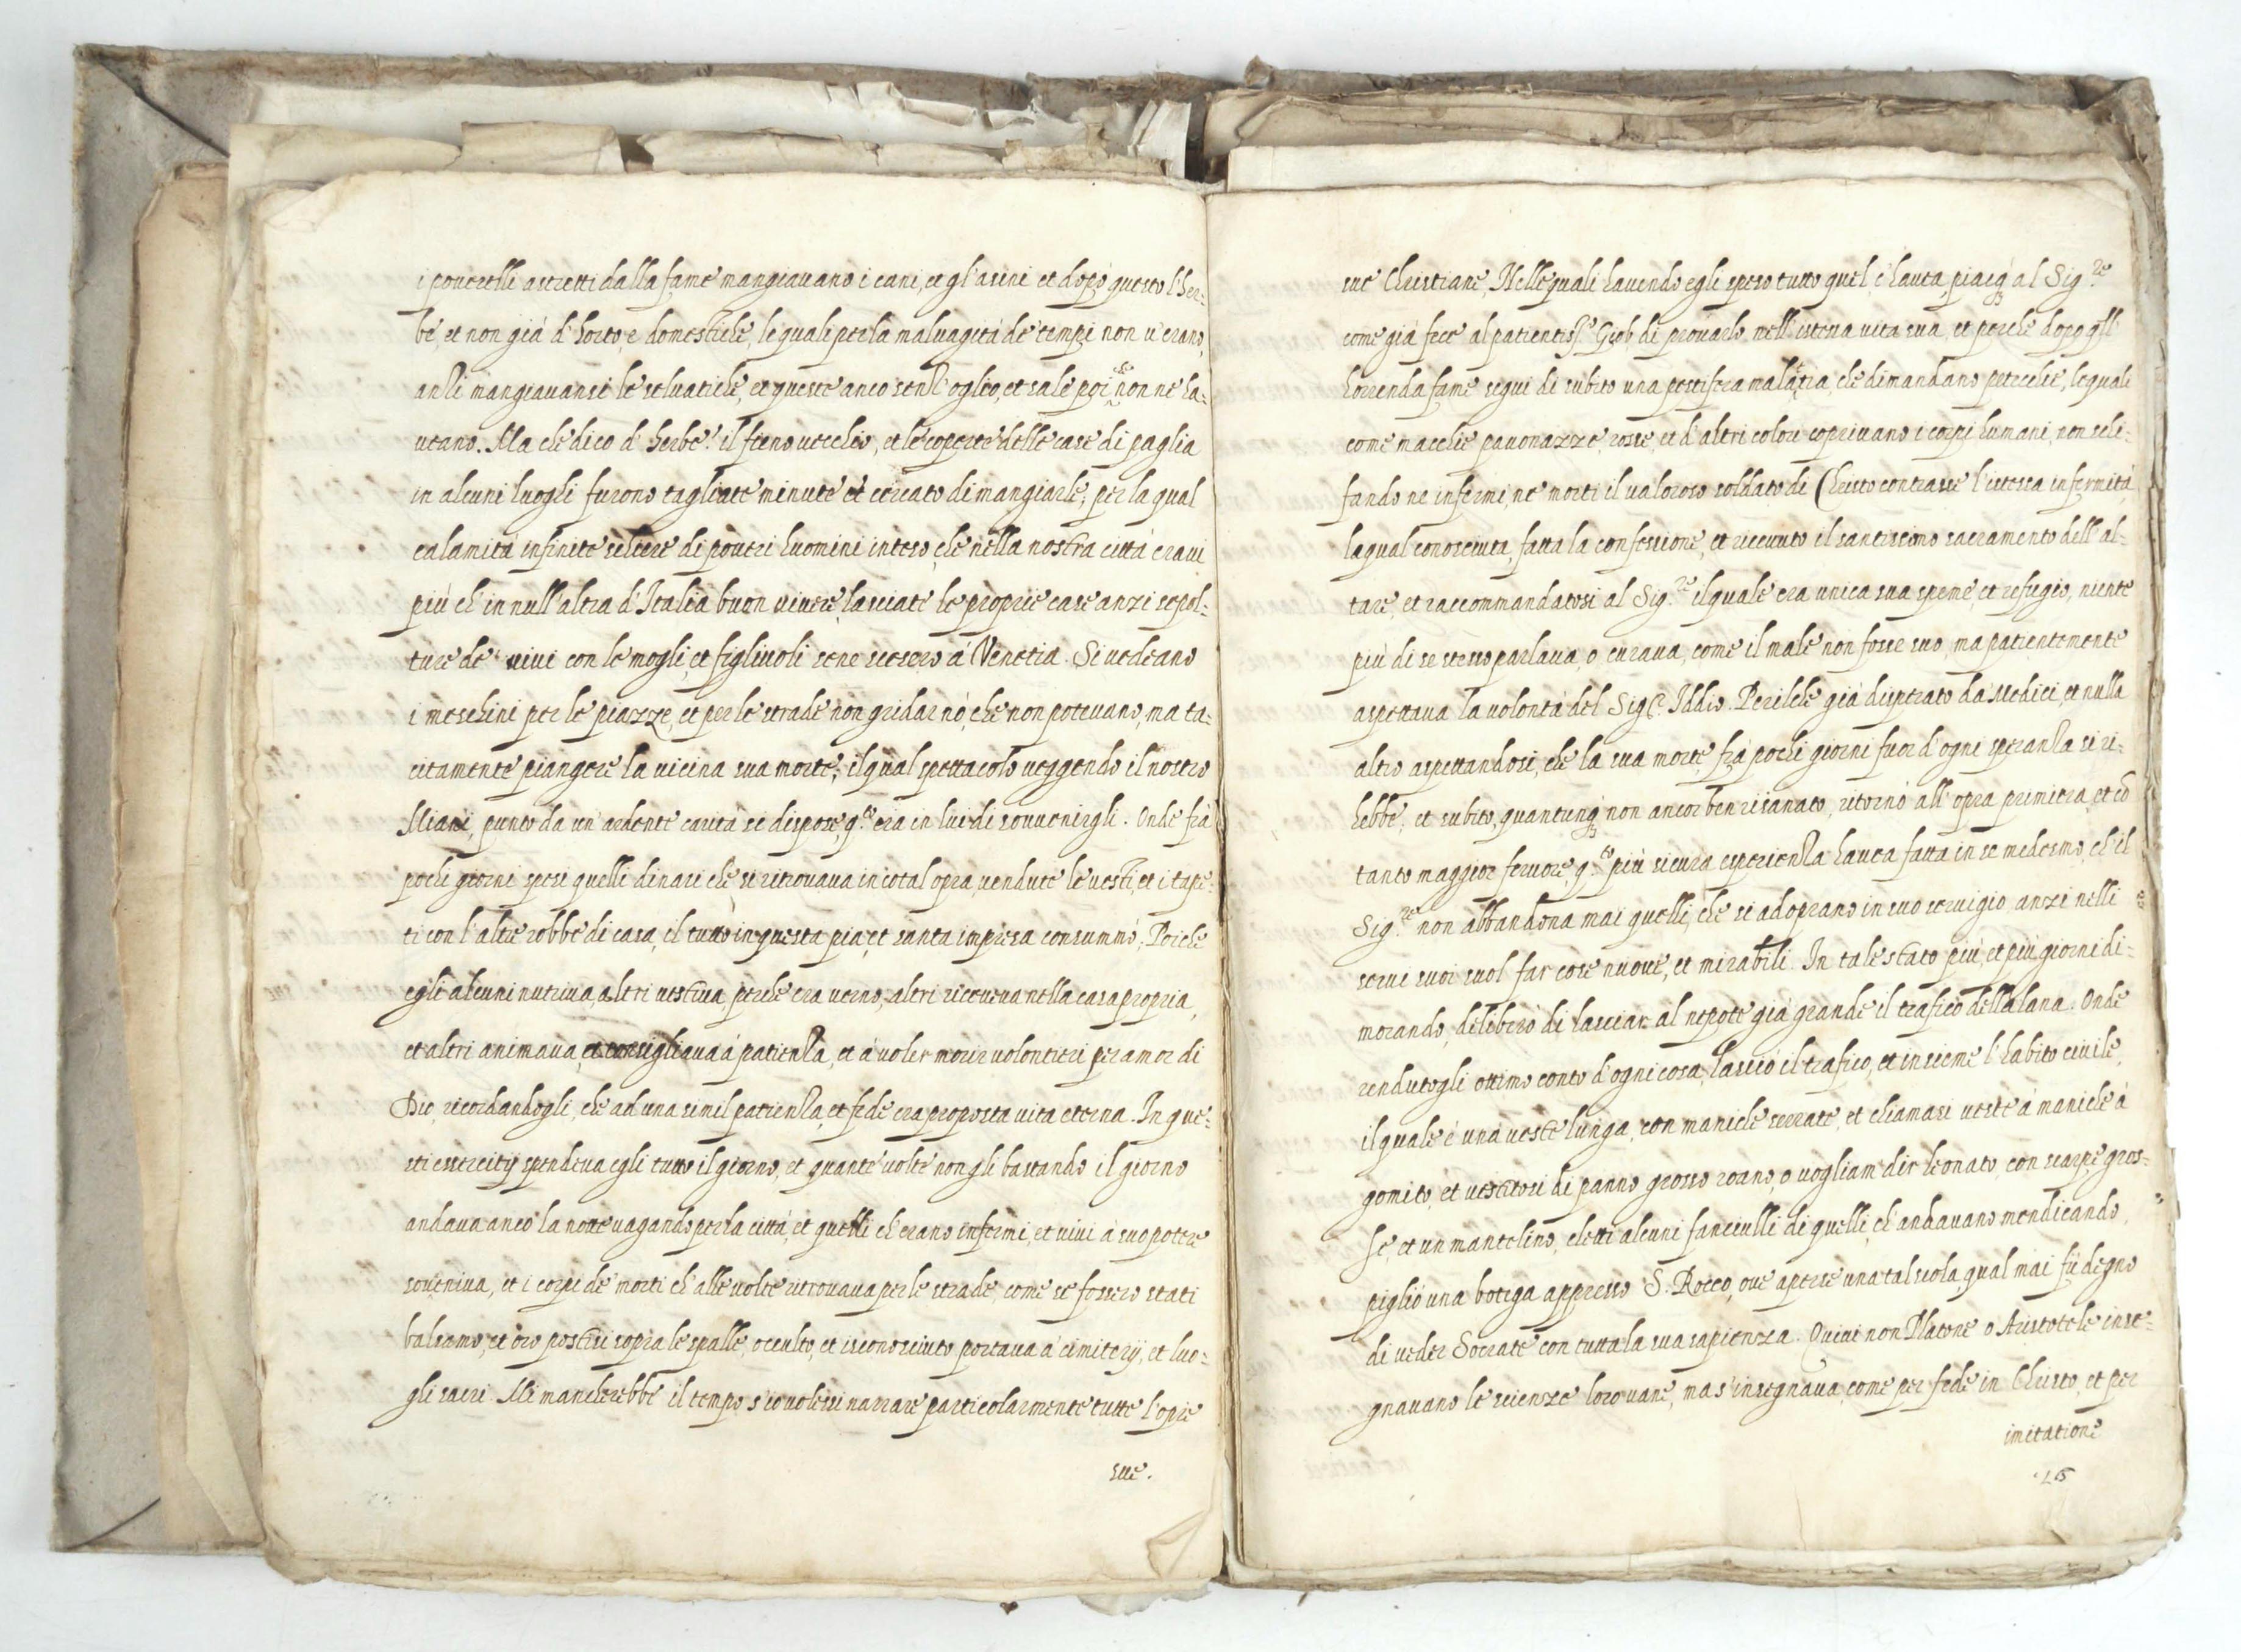 i pouerelli astretti dalla fame mangiauano i cani, et gl'asini et dopò questo l'her-
be, et non già d'horto, e domestiche, le quali per la maluagità de' tempi non u'erano,
anzi mangiauansi le seluatiche, et queste anco senz'oglio, et sale poi che non ne ha-
ueano. Ma che dico d'herbe? il fieno uecchio, et le coperte delle case di paglia
in alcuni luoghi furono tagliate minute et cercato di mangiarle, per la qual
calamità infinite schiere di poueri huomini inteso, che nella nostra città eraui
più ch'in null'altra d'Italia buon uiuere, lasciate le proprie case anzi sepol-
ture de' uiui con le mogli, et figliuoli sene uennero à Venetia. Si uedeano
i meschini per le piazze, et per le strade non gridar nò, che non poteuano, ma ta-
citamente piangere la uicina sua morte, il qual spettacolo ueggendo il nostro
Miani, punto da un'ardente carità si dispose, q.to era in lui di souuenirgli. Onde frà
pochi giorni spesi quelli dinari che si ritrouaua in cotal opra, uendute le uesti, et i tape-
ti con l'altre robbe di casa, il tutto in questa pia, et santa impresa consummò, Poiche
egli alcuni nutriua altri uestiua, perche era uerno, altri riceueua nella casa propria,
et altri animaua, et consigliaua à patienza, et à uoler morir uolontieri per amor di
Dio, ricordandogli, che ad una simil patienza, et fede era proposta uita eterna. In que-
sti essercitij spendeua egli tutto il giorno, et quante uolte non gli bastando il giorno
andaua anco la notte uagando per la città, et quelli ch'erano infermi, et uiui à suo potere
soueniua, et i corpi de' morti ch'alle uolte ritrouaua per le strade, come se fossero stati
balsamo, et oro postisi sopra le spalle, occulto, et isconosciuto portaua à cimiterij, et luo-
ghi sacri. Mi mancherebbe il tempo s'io uolessi narrare particolarmente tutte l'opre
sue.
sue Christiane, Nelle quali hauendo egli speso tutto quel, c'hauea, piacq; al Sig.re
come già fece al patientiss.o Giob di prouarlo nell'istessa uita sua, et perche dopo q̃ll'
horrenda fame seguì di subito una pestifera malatia, che dimandano petecchie, le quali
come macchie pauonazze, rosse, et d'altri colori copriuano i corpi humani, non schi-
fando ne infermi, ne morti il ualoroso soldato di Christo contrasse l'istessa infermità,
la qual conosciuta, fatta la confessione, et riceuuto il santissimo sacramento dell'al-
tare, et raccommandatosi al Sig.re il quale era unica sua speme, et refugio, niente
più di se stesso parlaua, o curaua, come il male non fosse suo, ma patientemente
aspettaua la uolontà del Sig.r Iddio. Perilche già disperato da Medici, et nulla
altro aspettandosi, che la sua morte, frà pochi giorni fuor d'ogni speranza si ri-
hebbe, et subito, quantunq; non ancor ben risanato, ritornò all'opra primiera, et cõ
tanto maggior feruore, q.to più sicura esperienza hauea fatta in se medesmo, ch'il
Sig.re non abbandona mai quelli, che si adoprano in suo seruigio, anzi nelli
serui suoi suol far cose nuoue, et mirabili. In tale stato più, et più giorni di-
morando, deliberò di lasciar al nepote già grande il trafico della lana. Onde
rendutogli ottimo conto d'ogni cosa, lasciò il trafico, et insieme l'habito ciuile,
il quale è una ueste lunga, con maniche serrate, et chiamasi ueste à maniche à
gomito, et uestitosi di panno grosso roano, o uogliam dir leonato, con scarpe gros-
se, et un mantelino, eletti alcuni fanciulli di quelli, ch'andauano mendicando,
pigliò una botega appresso S. Rocco, oue aperse una tal scola, qual mai fù degno
di ueder Socrate con tutta la sua sapienza. Quiui non Platone o Aristotele inse-
gnauano le scienze loro uane, ma s'insegnaua, come per fede in Christo, et per
imitatione